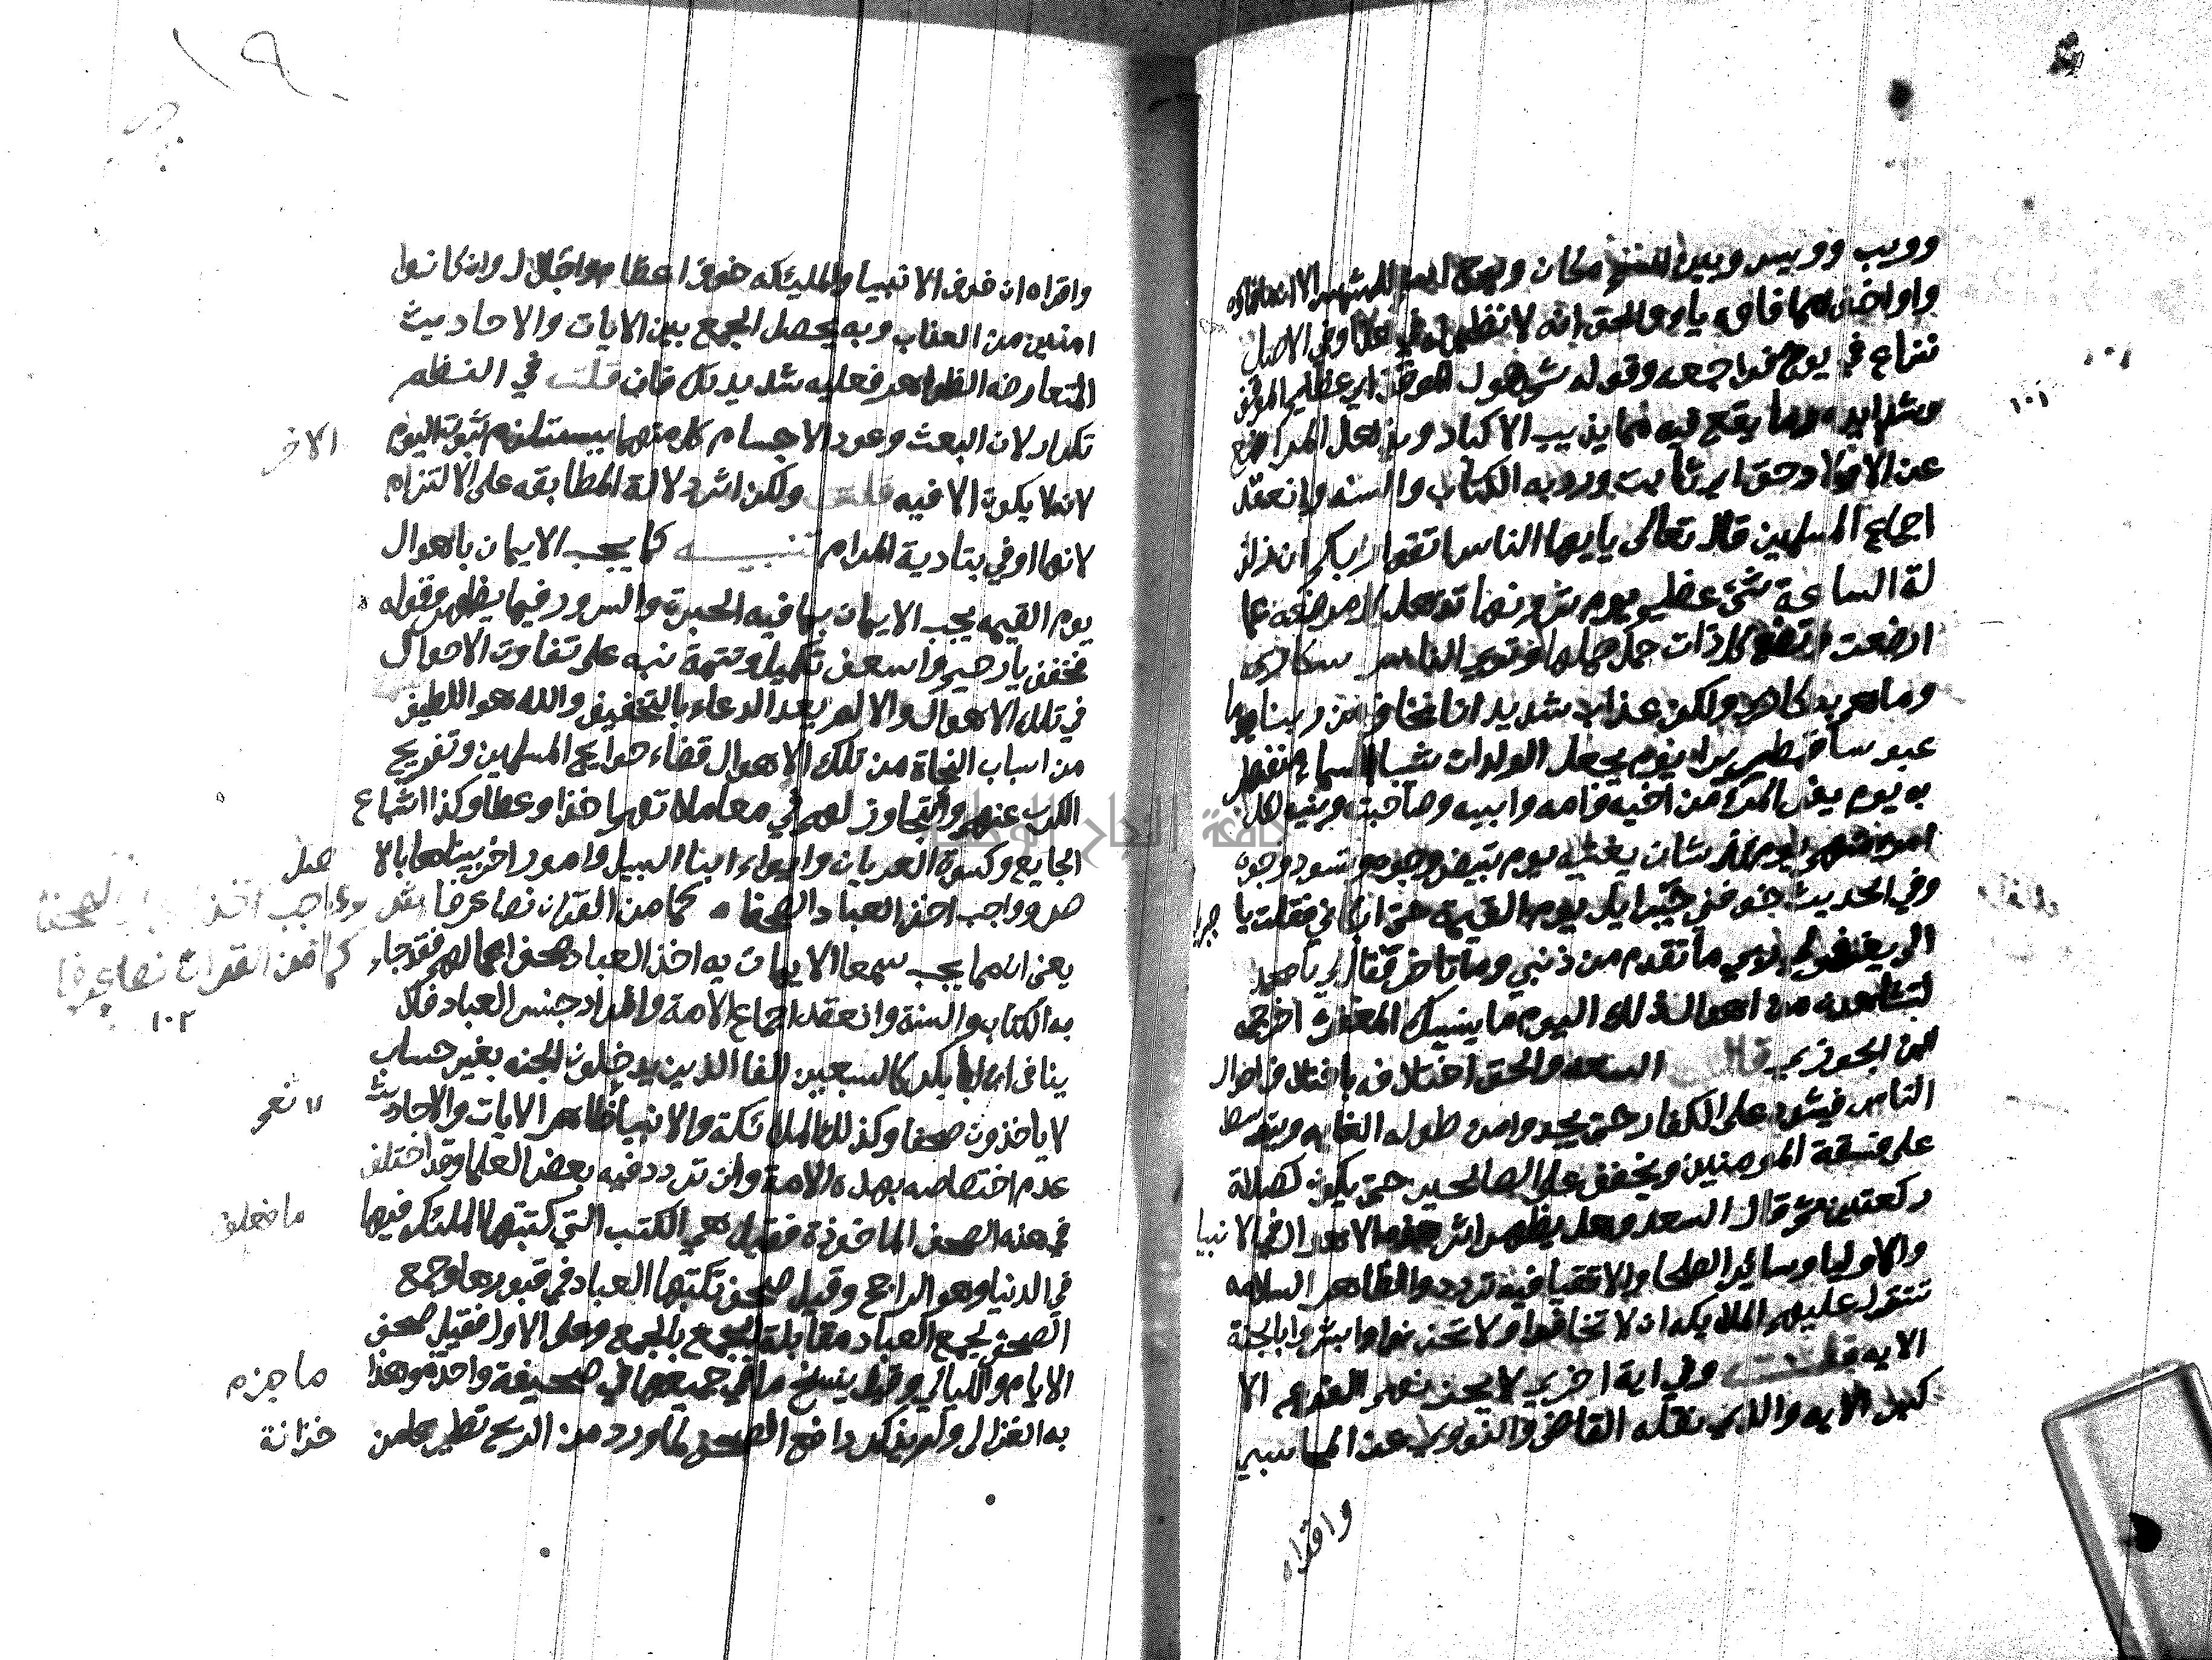 وويب وويس وبين مكان و الا ان
واو اخذ مما فاؤه ياء والحق انه لا نظير له في وفي الاصل
نزاع في يوح فراجعه وقوله ثم هول الموقف اي عظيم الموقف
وشدايده وما يقع فيه مما يذيب الاكباد ويذهل المراضع
عن الاولاد حق اي ثابت ورد به الكتاب والسنه وانعقد
اجماع المسلمين قال تعالى يايها الناس اتقوا ربكم ان زلز
لة الساعة شئ عظيم يوم ترونها تذهل كل مرضعه عما
ارضعت وتضع كل ذات حمل حملها وتري الناس سكاري
وما هم بسكاري ولكن عذاب الله شديد انا نخاف من ربنا يوما
عبوسا قمطريرا يوم يجعل الولدان شيبا السماء منفطر
به يوم يفر المرء من اخيه وامه وابيه وصاحبته وبنيه لكل
امرئ منهم يومئذ شان يغنيه يوم تبيض وجوه وتسود وجوه
وفي الحديث خوفني جبرايل يوم القيمة حتى ابكاني فقلت يا جبرا
الم يغفر لي ربي ما تقدم من ذنبي وما تاخر فقال لي يا محمد
لتشاهدن من اهوال ذلك اليوم ما ينسيك المغفرة اخرجه
ابن الجوزي قال السعد والحق اختلافه باختلاف احوال
الناس فيشدد على الكفار حتى يجدوا من طوله الغايه ويتوسط
على فسقة المومنين ويخفف على الصالحين حتى يكون كصلاة
ركعتين ثم قال السعد وهل يظهر اثر هذه الاهوال في الانبيا
والاوليا وساير الصلحا والاتقيا فيه تردد والظاهر السلامه
تتنزل عليهم الملايكه ان لا تخافوا ولا تحزنوا وابشروا بالجنة
الايه قلت وفي اية اخري لا يحزنهم الفزع الا
كبر الايه والذي نقله القاضي والنووي عن المحاسبي
واقراه
١٠١
١٩
واقراه ان خوف الانبيا والمليكه خوف اعظام واجلال وان كانوا
امنين من العذاب وبه يحصل الجمع بين الايات والاحاديث
المتعارضه الظواهر فعليه شد يديك فان قلت في النظم
تكرار لان البعث وعود الاجسام كل منهما يستلزم ثبوت اليوم الاخر
لانه لا يكون الا فيه قلت ولكن اثر دلالة المطابقه على الالتزام
لانها اوفي بتادية المرام تنبيـــه كما يجب الايمان باهوال
يوم القيمه يجب الايمان بما فيه الحبرة والسرور فيما يظهر وقوله
فخفف يا رحيم واسعف تكميل وتتمة نبه على تفاوت الاحوال
في تلك الاهوال والا لم يفد الدعاء بالتخفيف والله هو اللطيف
من اسباب النجاة من تلك الاهوال قضاء حوايج المسلمين وتفريج
الكرب عنهم والتجاوز لهم في معاملاتهم اخذا وعطا وكذا اشباع
الجايع وكسوة العريان وايواء ابنا السبيل وامور اخر بيناها بالا صل
ص وواجب اخذ العباد الصحفا ه كما من القران نصا عرفا ش
يعني ان مما يجب سمعا الايمان به اخذ العباد صحف اعمالهم فقد جاء
به الكتاب والسنة وانعقد اجماع الامة والمراد جنس العباد فلا
ينافي ان ابا بكر كالسبعين الفا الذين يدخلون الجنه بغير حساب
لا ياخذون صحفا وكذلك الملائكة والانبيا ظاهر الايات والاحاديث
عدم اختصاصه بهذه الامة وان تردد فيه بعض العلما وقد اختلف
في هذه الصحف الماخوذة فقيل هي الكتب التي كتبتها الملئكه فيها
في الدنيا وهو الراجح وقيل صحف تكتبها العباد في قبورها وجمع
الصحف لجمع العباد مقابلة الجمع بالجمع وعلى الاول فقيل صحف
الايام والليالي وقيل ينسخ ما في جميعها في صحيفة واحدة وهذا ما جزم
به الغزالي ولم يذكر دافع الصحف لما ورد من الريح تطيرها من خزانة
وواجب اخذ العباد الصحفا
كما من القران نصا عرفا
١٠٢
جامعة النجاح الوطنية